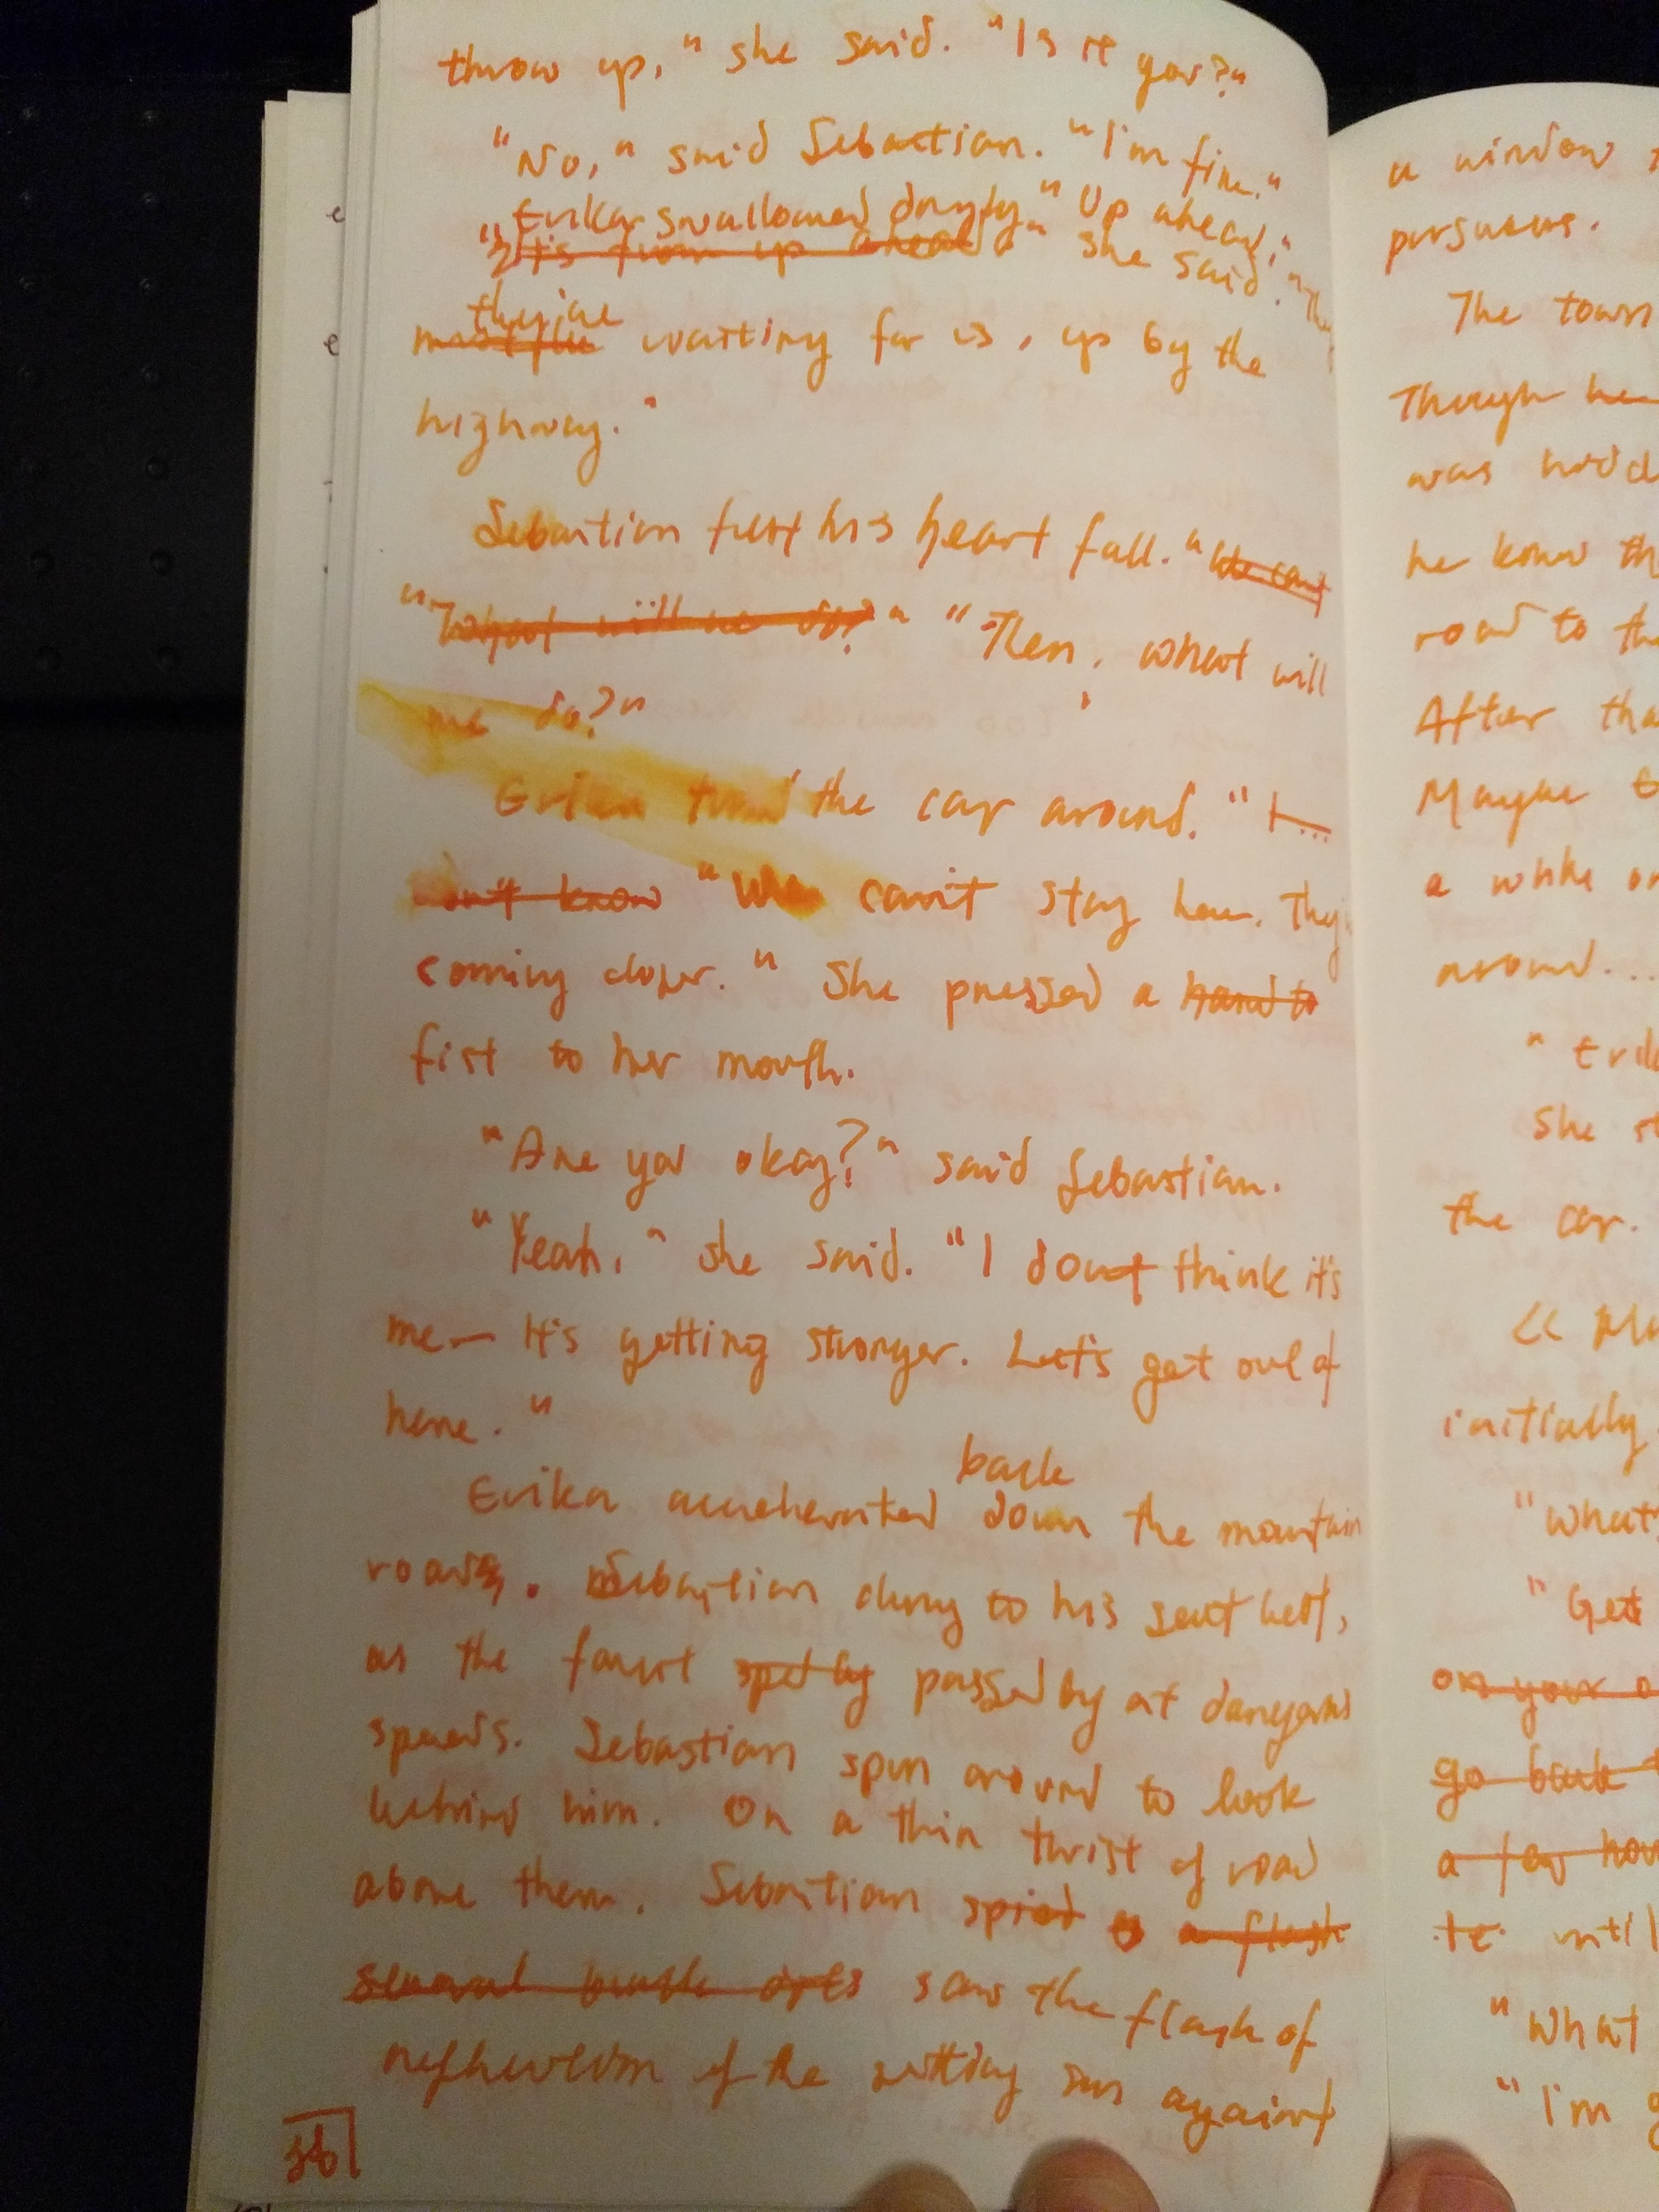 throw up," she said. "Is it you?"
"No," said Sebastian. "I'm fine."
Erika swallowed dryly. "Up ahead,"
"It's from up ahead" she said. "They
they're
must be waiting for us, up by the
highway."
Sebastian felt his heart fall. "We can't
"What will we do?" "Then, what will
we do?"
Erika turned the car around. "I...
don't know "We can't stay here. They
coming closer." She pressed a hand to
fist to her mouth.
"Are you okay?" said Sebastian.
"Yeah," she said. "I don't think it's
me— It's getting stronger. Let's get out of
here."
back
Erika accelerated down the mountain
roads. Sebastian clung to his seat belt,
as the forest sped by passed by at dangerous
speeds. Sebastian spun around to look
behind him. On a thin twist of road
above them, Sebastian spied a flash
several black cars saw the flash of
reflection of the setting sun against
36
a window
pursuers.
The town
Though he
was hidd
he knew th
road to the
After tha
Maybe
a while on
around...
"Erik
She st
the car.
<<
initially
"What
"Get
on your
go back
a few hou
te until
"What
"I'm g